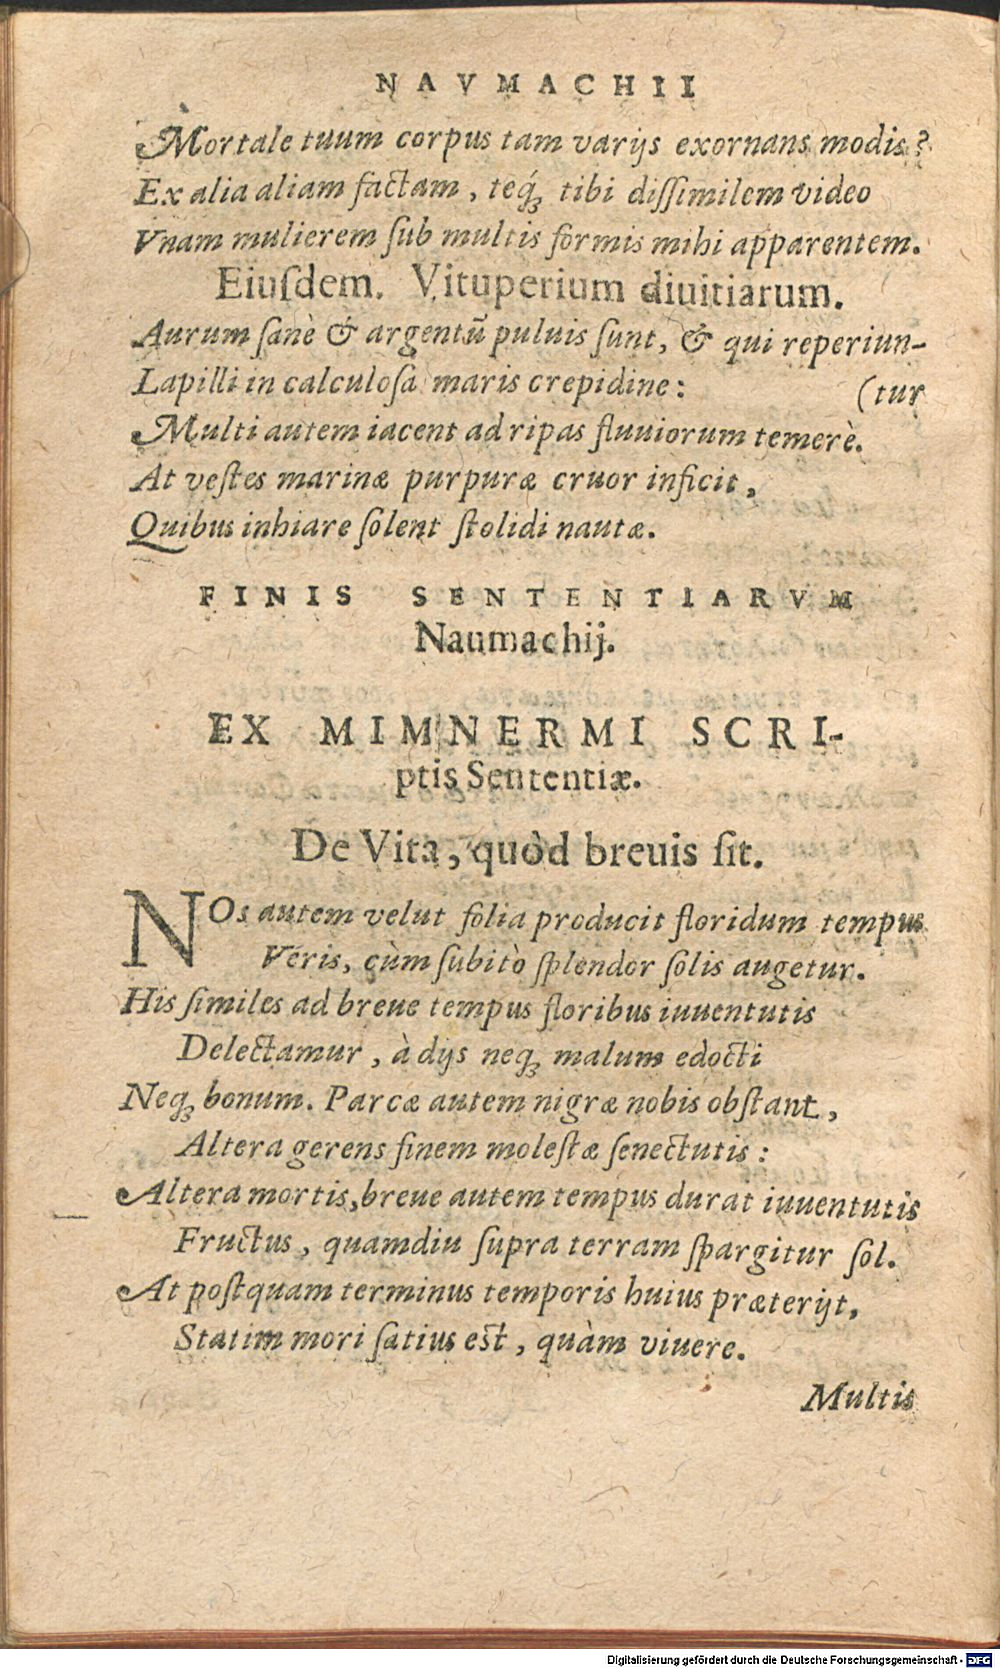 NAVMACHII
Mortale tuum corpus tam varijs exornans modis?
Ex alia aliam factam, teq́; tibi diſſimilem video
Vnam mulierem ſub multis formis mihi apparentem.
Eiuſdem. Vituperium diuitiarum.
Aurum ſanè & argentū puluis ſunt, & qui reperiun-
Lapilli in calculoſa maris crepidine: (tur
Multi autem iacent ad ripas fluuiorum temerè.
At veſtes marinæ purpuræ cruor inficit,
Quibus inhiare ſolent ſtolidi nautæ.
FINIS SENTENTIARVM
Naumachij.
EX MIMNERMI SCRI-
ptis Sententiæ.
De Vita, quòd breuis ſit.
NOs autem velut folia producit floridum tempus
Veris, cùm ſubitò ſplendor ſolis augetur.
His ſimiles ad breue tempus floribus iuuentutis
Delectamur, à dijs neq; malum edocti
Neq; bonum. Parcæ autem nigræ nobis obſtant,
Altera gerens finem moleſtæ ſenectutis:
Altera mortis, breue autem tempus durat iuuentutis
Fructus, quamdiu ſupra terram ſpargitur ſol.
At poſtquam terminus temporis huius præterijt,
Statim mori ſatius eſt, quàm viuere.
Multis
Digitalisierung gefördert durch die Deutsche Forschungsgemeinschaft - DFG